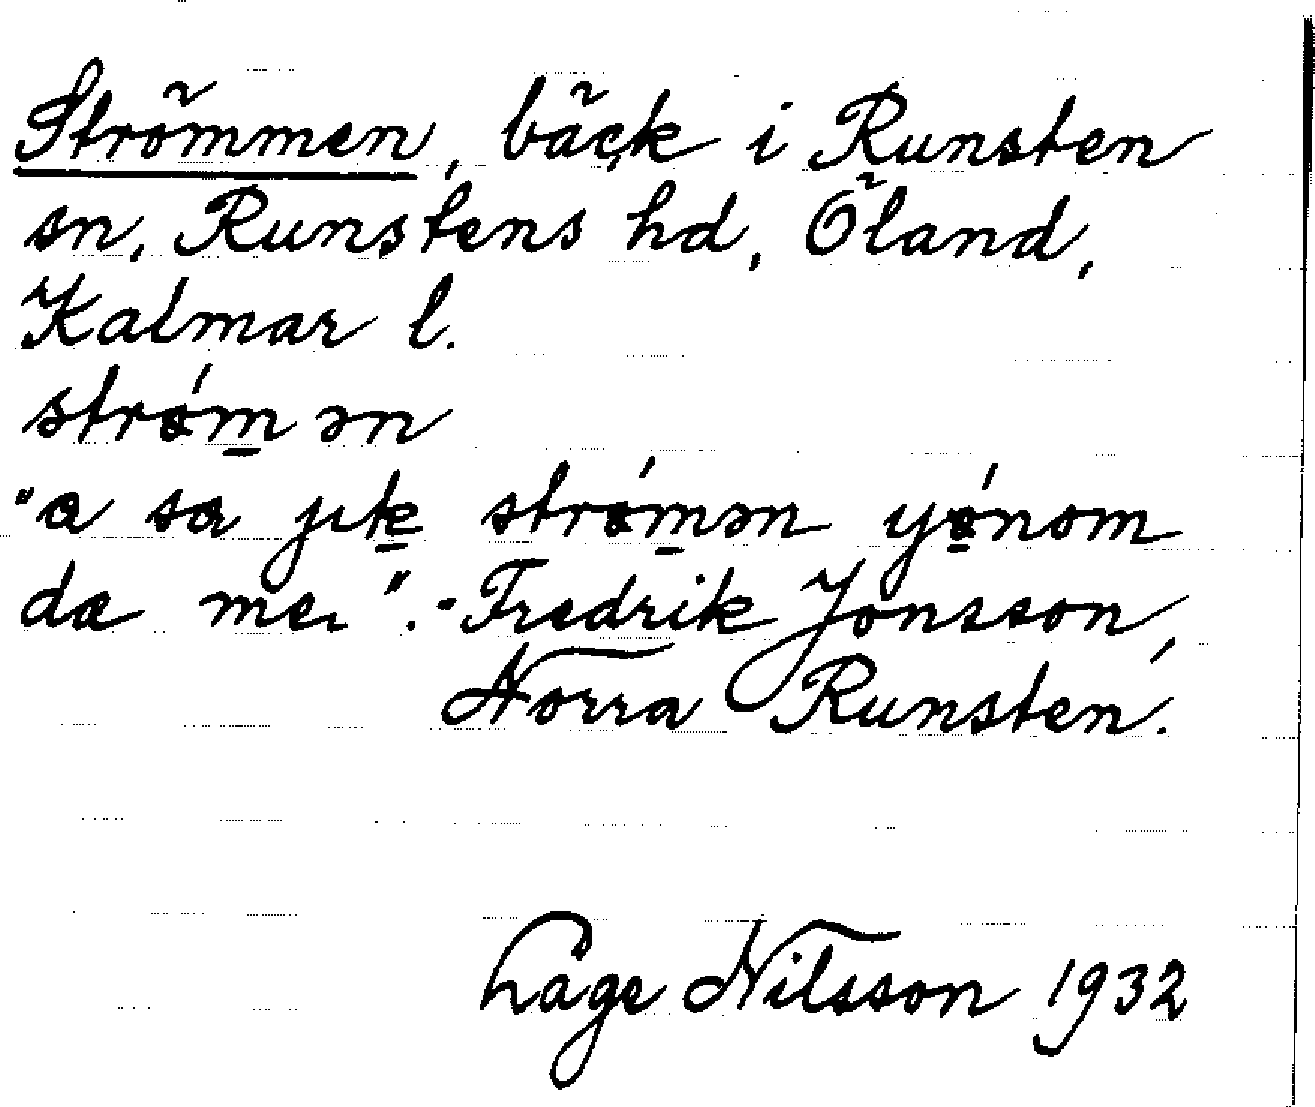 Strömmen, bäck i Runsten
sn, Runstens hd, Öland,
Kalmar l.
strǿm̲ən
"a sa jık̲ strǿm̲ən yǿ̲nom
dæ me".-Fredrik Jonsson,
Norra Runsten.
Låge Nilsson 1932